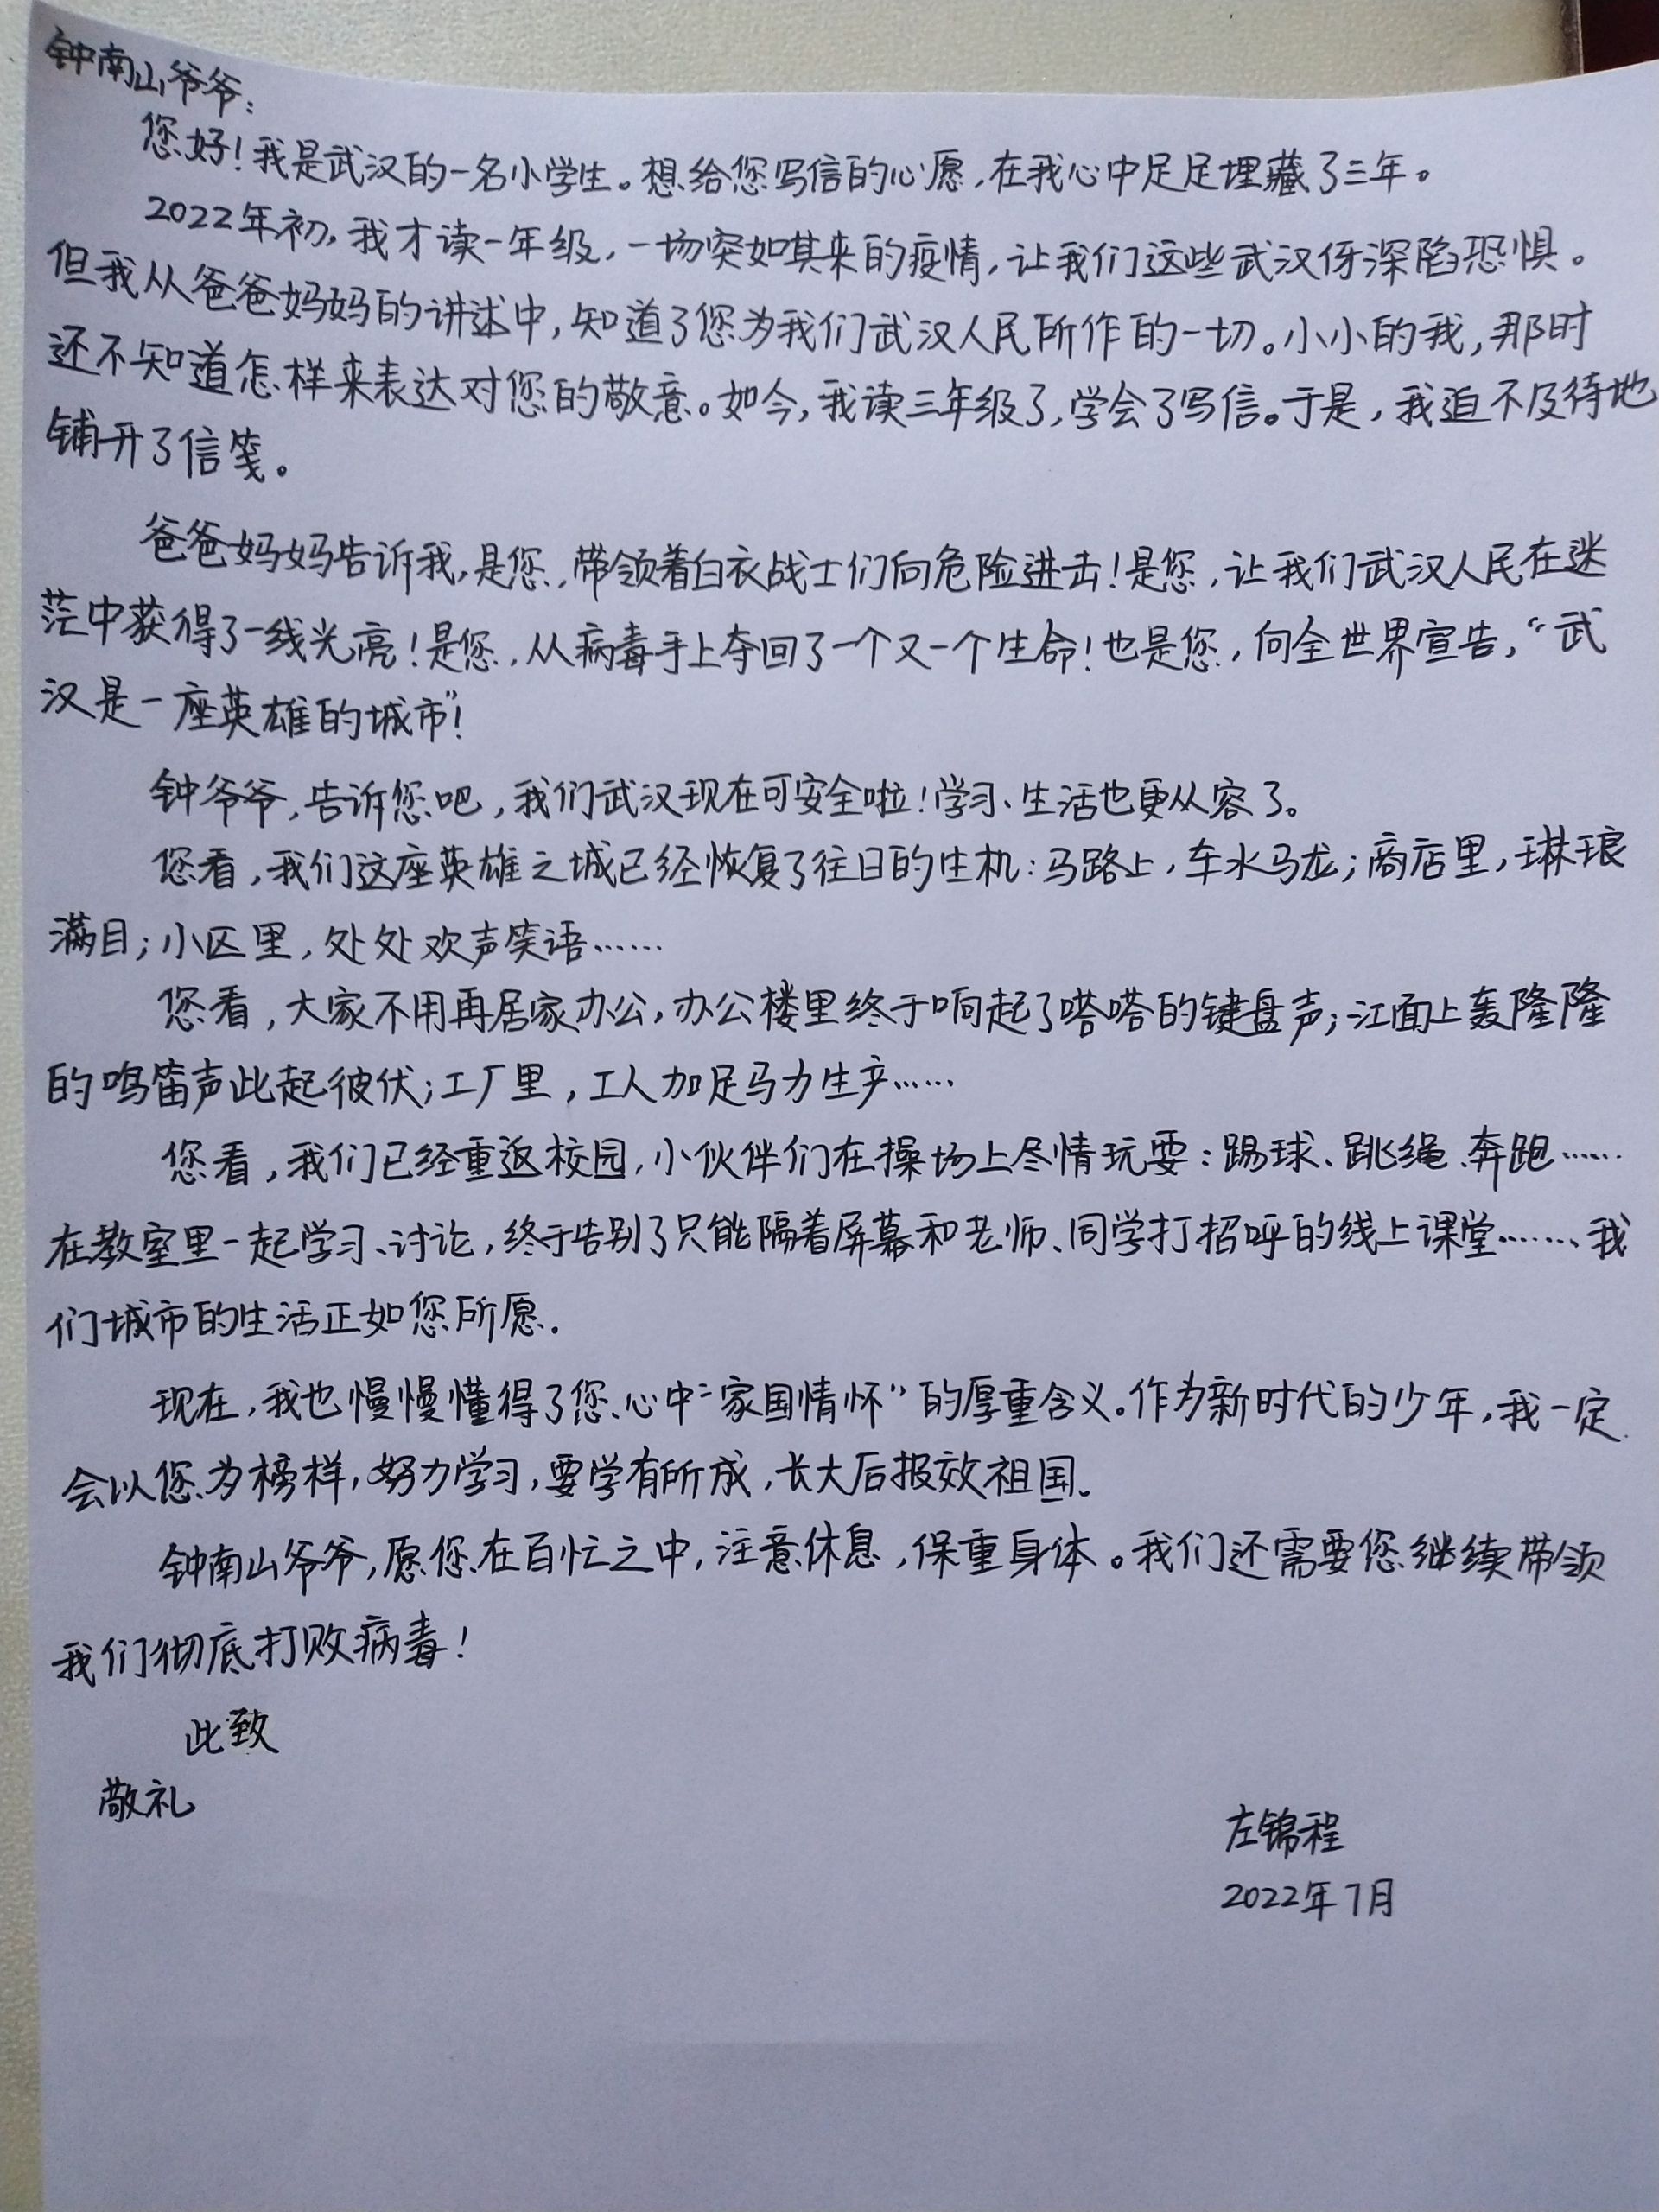 钟南山爷爷：
您好！我是武汉的一名小学生。想给您写信的心愿，在我心中足足埋藏了三年。
2022年初，我才读一年级，一场突如其来的疫情，让我们这些武汉伢深陷恐惧。
但我从爸爸妈妈的讲述中，知道了您为我们武汉人民所作的一切。小小的我，那时
还不知道怎样来表达对您的敬意。如今，我读三年级了，学会了写信。于是，我迫不及待地
铺开了信笺。
爸爸妈妈告诉我，是您，带领着白衣战士们向危险进击！是您，让我们武汉人民在迷
茫中获得了一线光亮！是您，从病毒手上夺回了一个又一个生命！也是您，向全世界宣告，“武
汉是一座英雄的城市”！
钟爷爷，告诉您吧，我们武汉现在可安全啦！学习、生活也更从容了。
您看，我们这座英雄之城已经恢复了往日的生机：马路上，车水马龙；商店里，琳琅
满目；小区里，处处欢声笑语……
您看，大家不用再居家办公，办公楼里终于响起了嗒嗒的键盘声；江面上轰隆隆
的鸣笛声此起彼伏；工厂里，工人加足马力生产……
您看，我们已经重返校园，小伙伴们在操场上尽情玩耍：踢球、跳绳、奔跑……
在教室里一起学习、讨论，终于告别了只能隔着屏幕和老师、同学打招呼的线上课堂……、我
们城市的生活正如您所愿。
现在，我也慢慢懂得了您心中“家国情怀”的厚重含义。作为新时代的少年，我一定
会以您为榜样，努力学习，要学有所成，长大后报效祖国。
钟南山爷爷，愿您在百忙之中，注意休息，保重身体。我们还需要您继续带领
我们彻底打败病毒！
此致
敬礼
左锦程
2022年7月